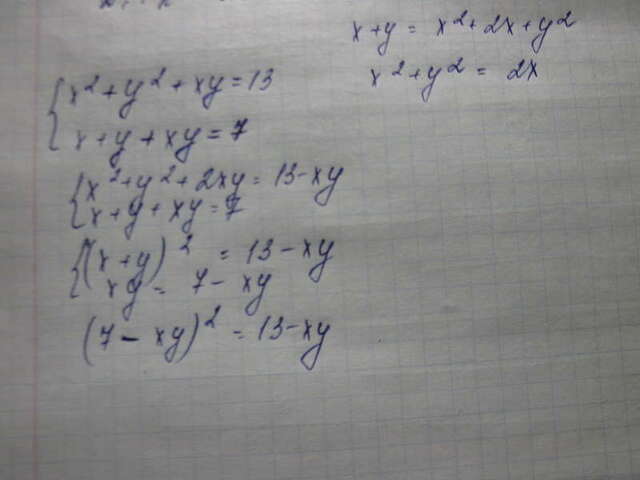 x+y = x²+2x+y²
x²+y² = 2x
{x²+y²+xy=13
x+y+xy=7
{x²+y²+2xy=13-xy
x+y+xy=7
{(x+y)² = 13-xy
xy= 7- xy
(7-xy)²=13-xy